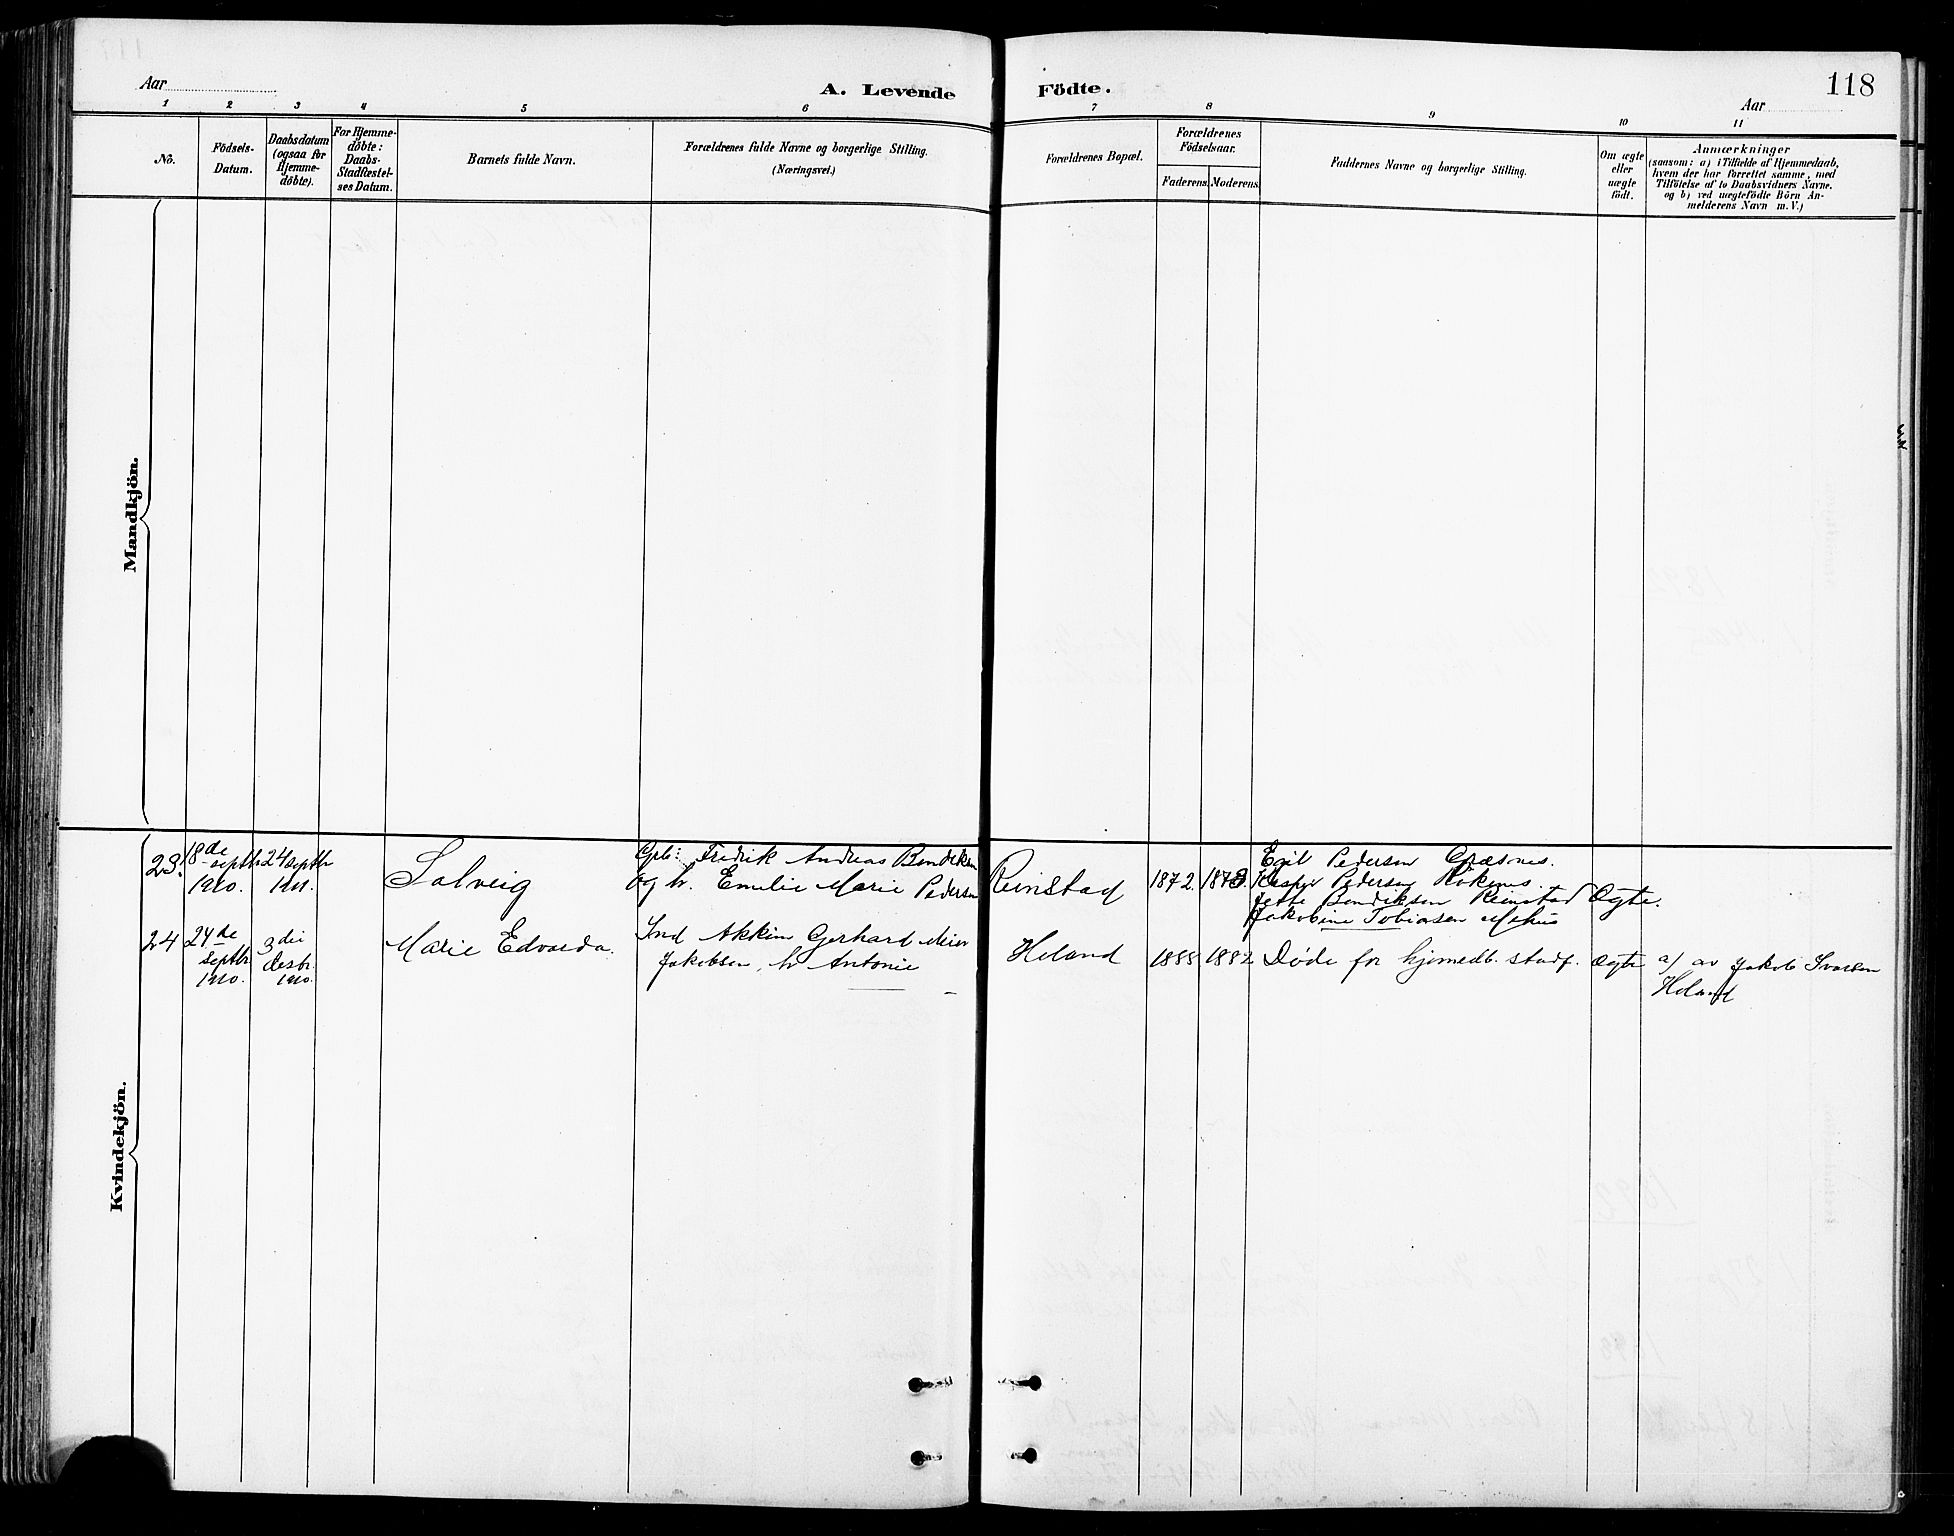 118
Aar
A. Levende Födte.
Aar
1 2 3 4 5 6 7 8 9 10 11
No.
Födsels-
Datum.
Daabsdatum
(ogsaa for
Hjemme-
döbte).
For Hjemme-
döbte:
Daabs-
Stadfæstel-
ses Datum.
Barnets fulde Navn.
Forældrenes fulde Navne og borgerlige Stilling.
(Næringsvei.)
Forældrenes Bopæl.
Forældrenes
Födselsaar.
Faderens. Moderens.
Faddernes Navne og borgerlige Stilling.
Om ægte
eller
uægte
födt.
Anmærkninger
(saasom: a) i Tilfælde af Hjemmedaab,
hvem der har forrettet samme, med
Tilföielse af to Daabsvidners Navne.
og b) ved uægtefödte Börn An-
melderens Navn m. V.)
Mandkjön.
Kvindekjön.
23.
18de
septbr
1910.
24 septbr
1911.
Solveig
Gbr: Fredrik Andreas Bendiksen
og h. Emilie Marie Pedersen
Reinstad
1872. 1873
Egil Pedersen Græsnes.
Kasper Pedersen
Jette Bendiksen Reinstad
Jakobine Tobiasen
Ægte.
24
24de
septbr.
1910.
3die
desbr.
1910.
Marie Edvarda.
Ind Akkim Gerhard Meier
Jakobsen, h Antonie
Holand
1888 1882
Døde før hjemedb. stadf.
Ægte
a) av Jakob Ivarsen
Holand